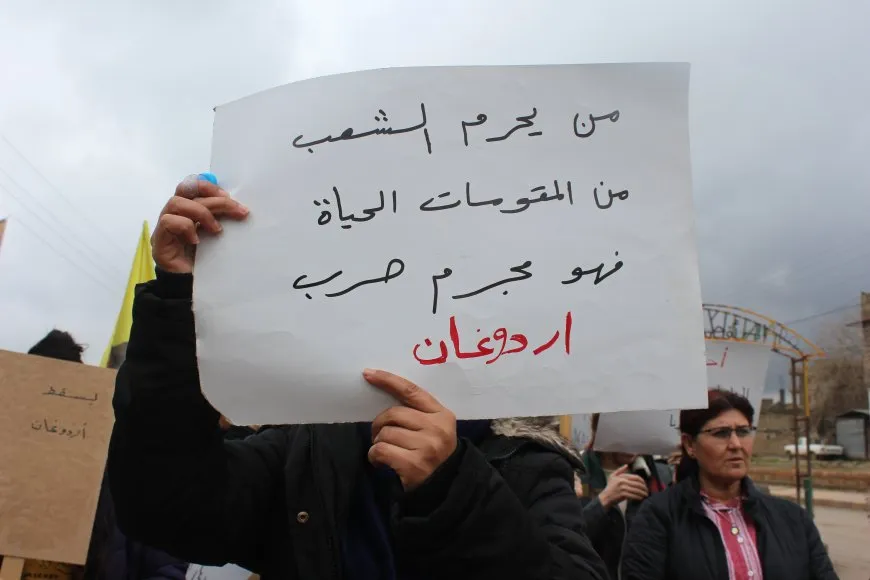 من يحرم الشعب
من المقومات الحياة
فهو مجرم حرب
اردوغان
ليسقط
أردوغان